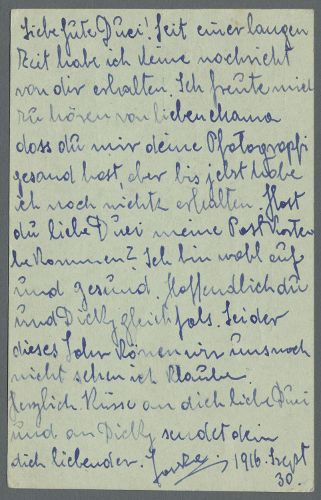 Liebe gute Duci! Seit einer langen
Zeit habe ich keine nachricht
von dir erhalten. Ich freute mich
zu hören von lieben Mama
dass du mir deine Photographi
gesand hast, aber bis jetzt habe
ich noch nichts erhalten. Hast
du liebe Duci meine Postkarten
bekommen? Ich bin wohl auf
und gesund. Hoffendlich du
und Dicky gleichfals. Leider
dieses Jahr könen wir uns noch
nicht sehen ich Klaube.
Herzlich Küsse an dich liebe Duci
und an Dicky sendet dein
dich liebender.
1916. Szept
30.